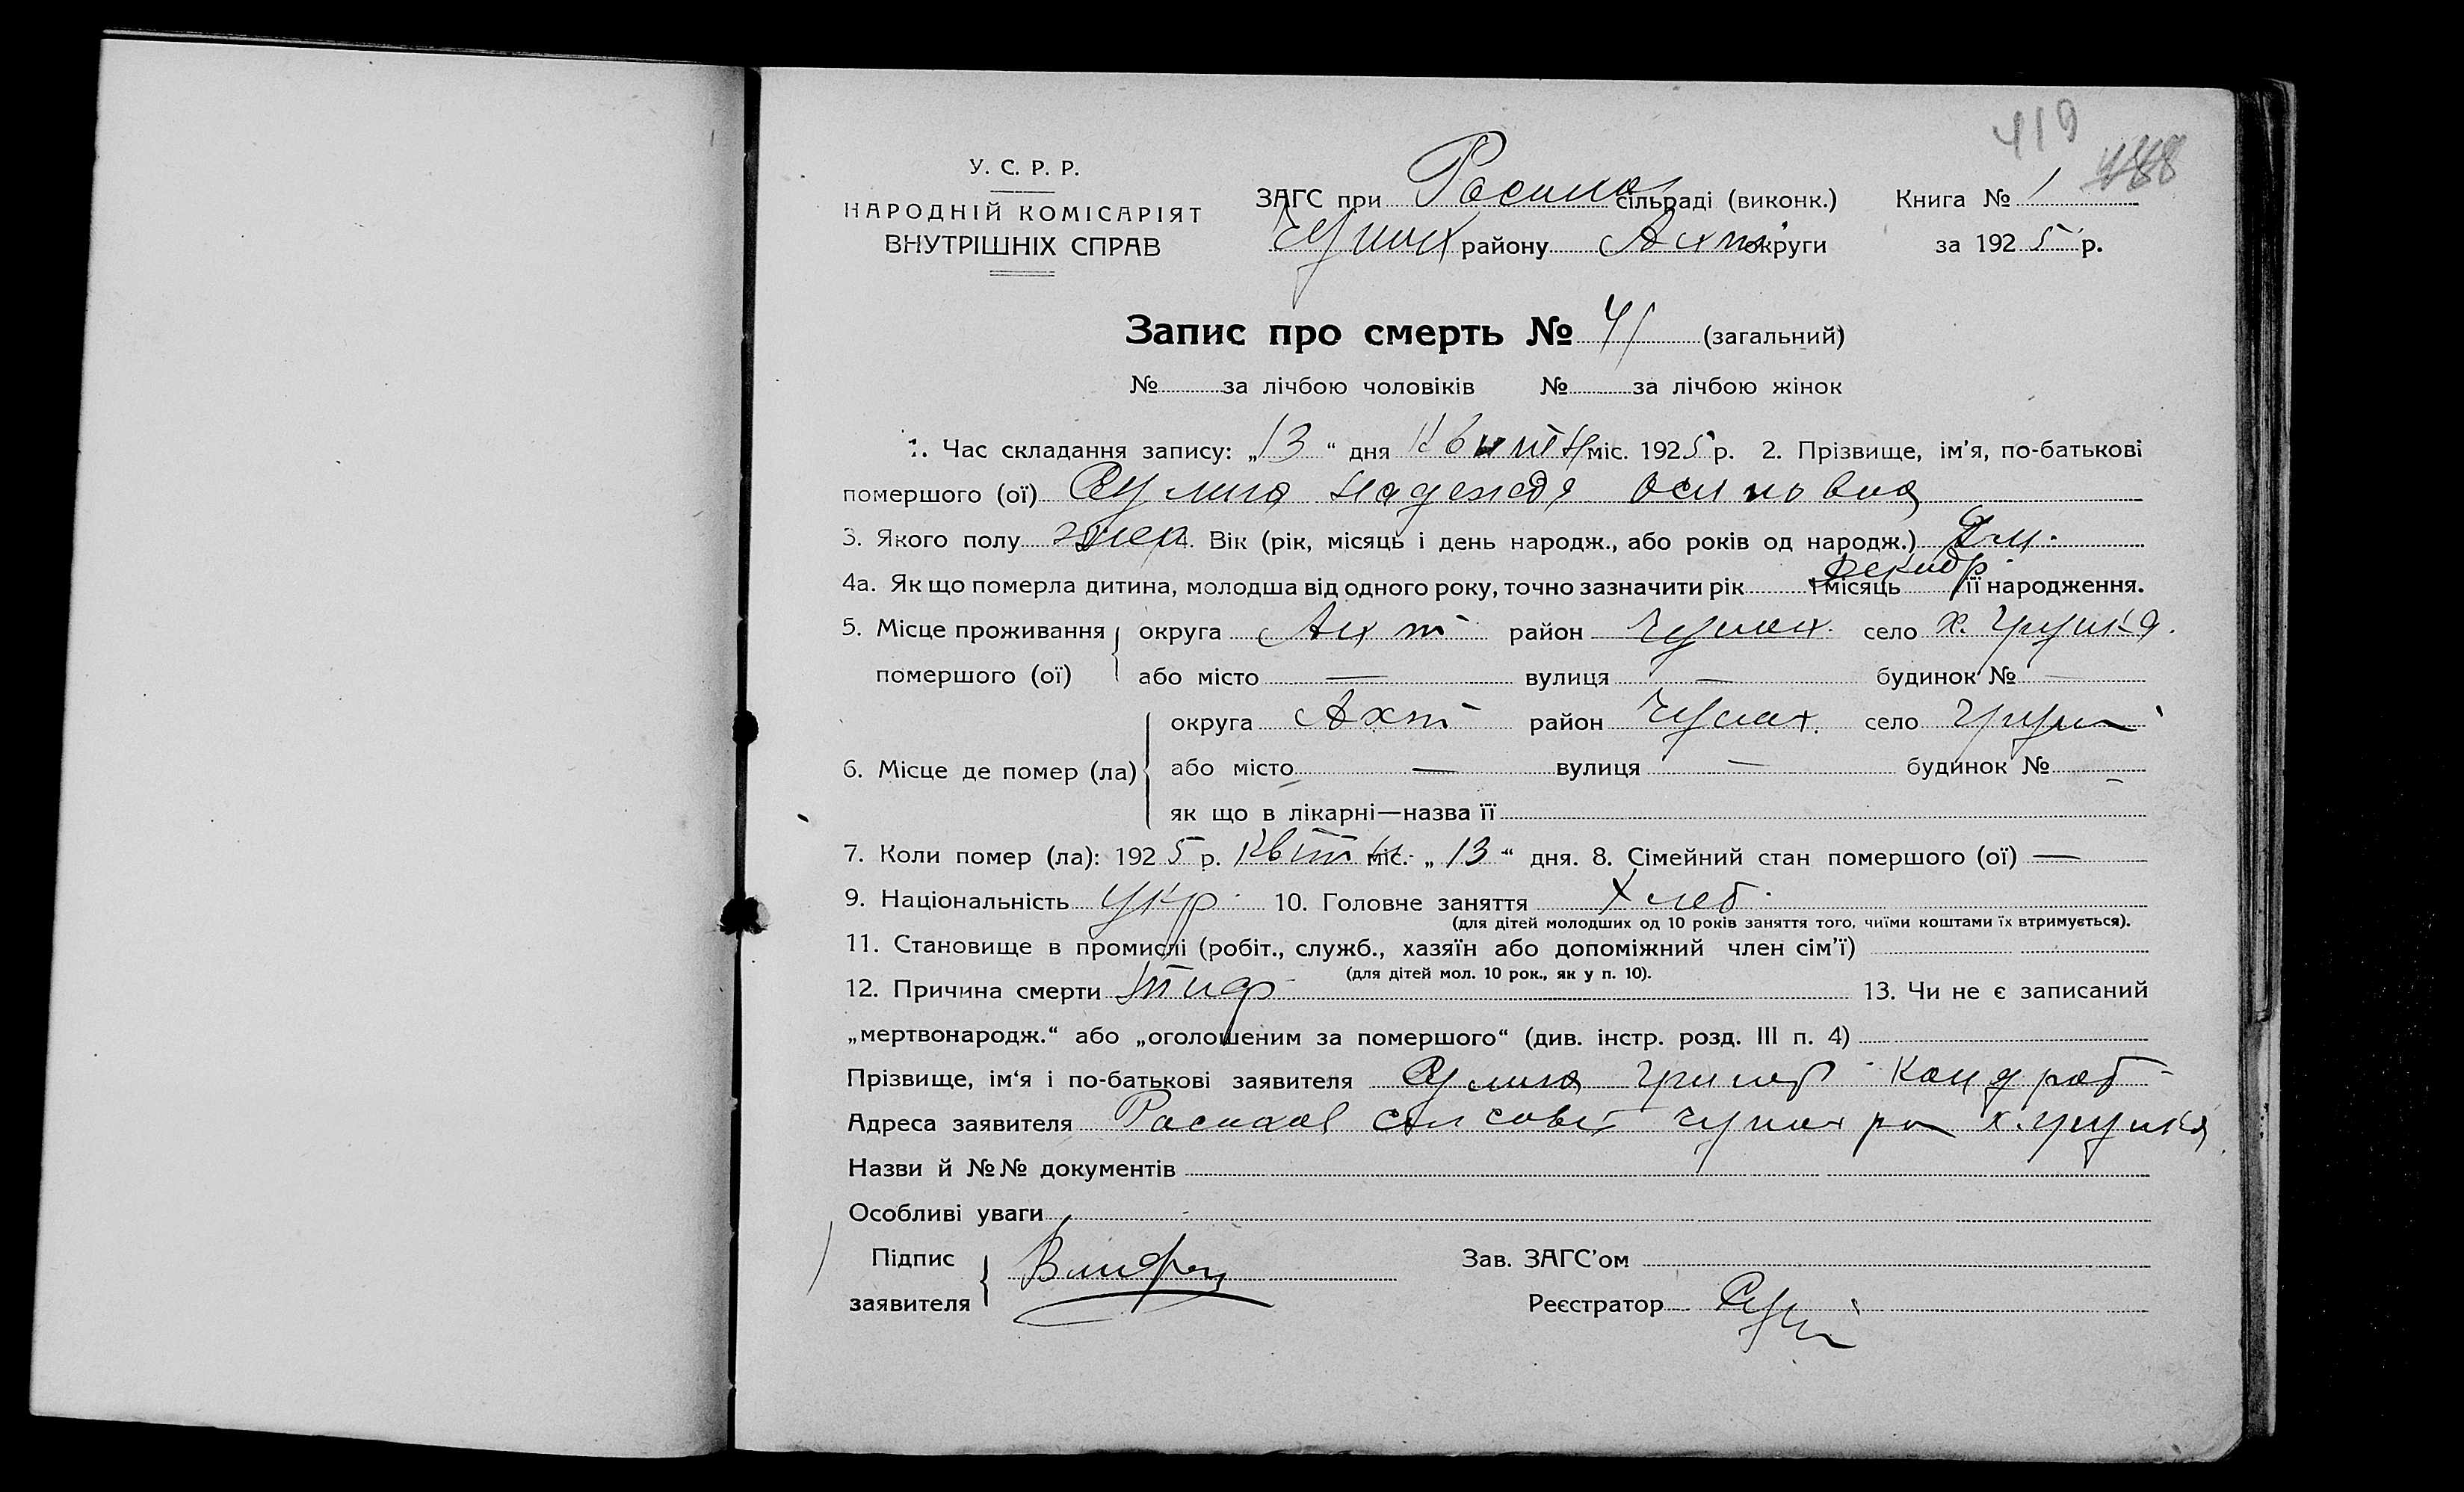 419
У. С. Р. Р.
НАРОДНІЙ КОМІСАРІЯТ
ВНУТРІШНІХ СПРАВ
ЗАГС при сільраді (виконк.) Книга № 1
району Ахт округи за 1925 р.
Запис про смерть № 41 (загальний)
№ за лічбою чоловіків № за лічбою жінок
1. Час складання запису: „13“ дня Квітн міс. 1925 р. 2. Прізвище, ім'я, по-батькові
помершого (ої) Сулима Надежда Осиповна
3. Якого полу жен 4. Вік (рік, місяць і день народж., або років од народж.)
4а. Як що померла дитина, молодша від одного року, точно зазначити рік і місяць її народження.
5. Місце проживання округа Ахт район село х. Грушка
помершого (ої) або місто — вулиця — будинок № —
округа Ахт район село Груш
6. Місце де помер (ла) або місто — вулиця — будинок № —
як що в лікарні—назва її
7. Коли помер (ла): 1925 р. Квітн міс. „13“ дня. 8. Сімейний стан помершого (ої) —
9. Національність Укр. 10. Головне заняття Хлеб.
(для дітей молодших од 10 років заняття того, чиїми коштами їх втримується).
11. Становище в промислі (робіт., служб., хазяїн або допоміжний член сім'ї)
(для дітей мол. 10 рок., як у п. 10).
12. Причина смерти тиф 13. Чи не є записаний
„мертвонародж.“ або „оголошеним за помершого“ (див. інстр. розд. III п. 4)
Прізвище, ім'я і по-батькові заявителя Сулима Кондрат
Адреса заявителя х. Грушка
Назви й №№ документів
Особливі уваги
Підпис Зав. ЗАГС'ом
заявителя Реєстратор